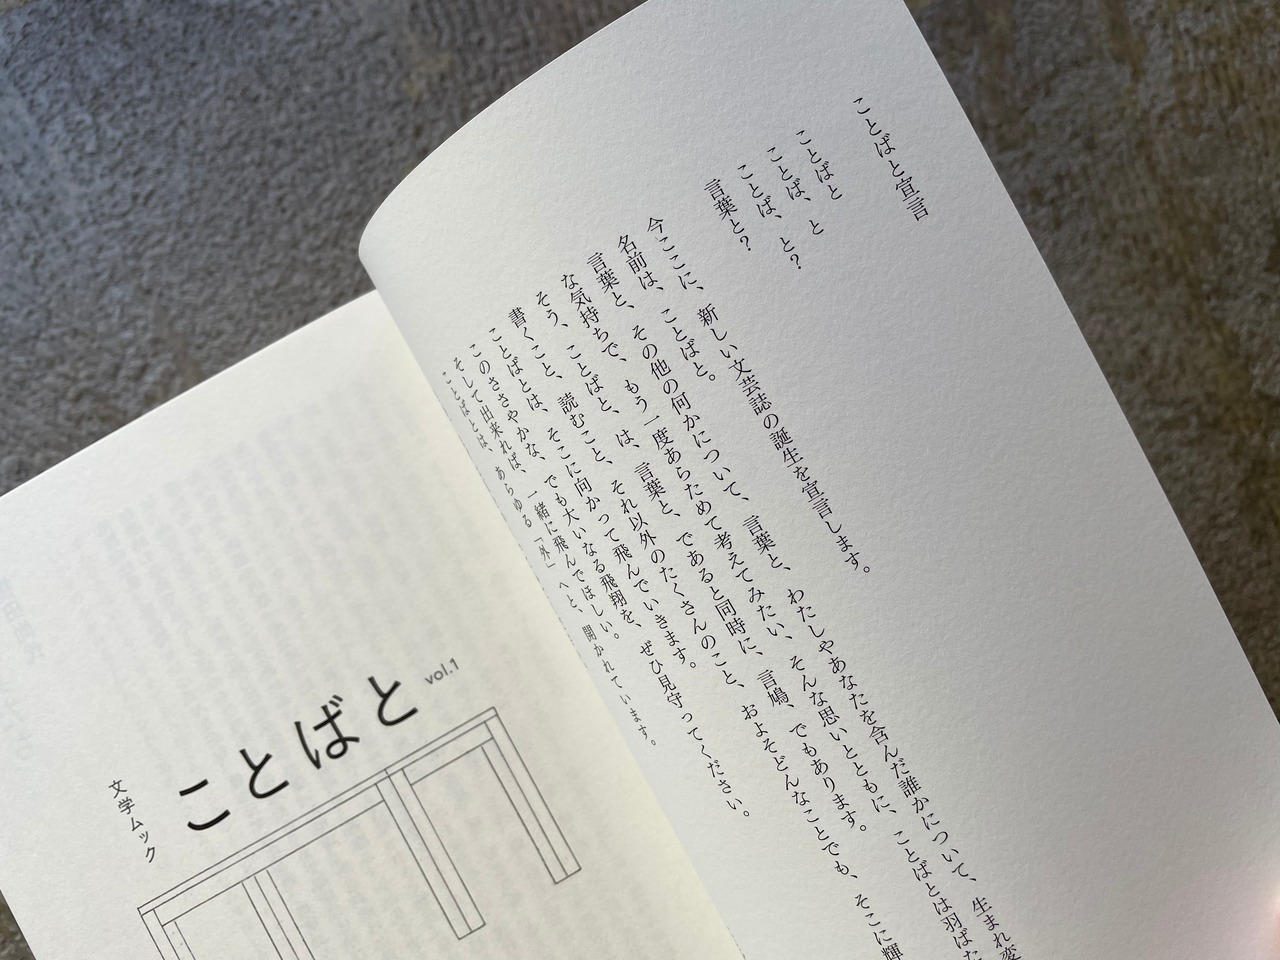 ことばと宣言
ことばと
ことば、と
ことば、と?
言葉と?
今ここに、新しい文芸誌の誕生を宣言します。
名前は、ことばと。
言葉と、その他の何かについて、言葉と、わたしやあなたを含んだ誰かについて、生まれ変
な気持ちで、もう一度あらためて考えてみたい、そんな思いとともに、ことばとは羽ばた
そう、ことばと、は、言葉と、であると同時に、言鳩、でもあります。
書くこと、読むこと、それ以外のたくさんのこと、およそどんなことでも、そこに輝
ことばとは、そこに向かって飛んでいきます。
このささやかな、でも大いなる飛翔を、ぜひ見守ってください。
そして出来れば、一緒に飛んでほしい。
ことばとは、あらゆる「外」へと、開かれています。
文学ムック
ことばと vol.1